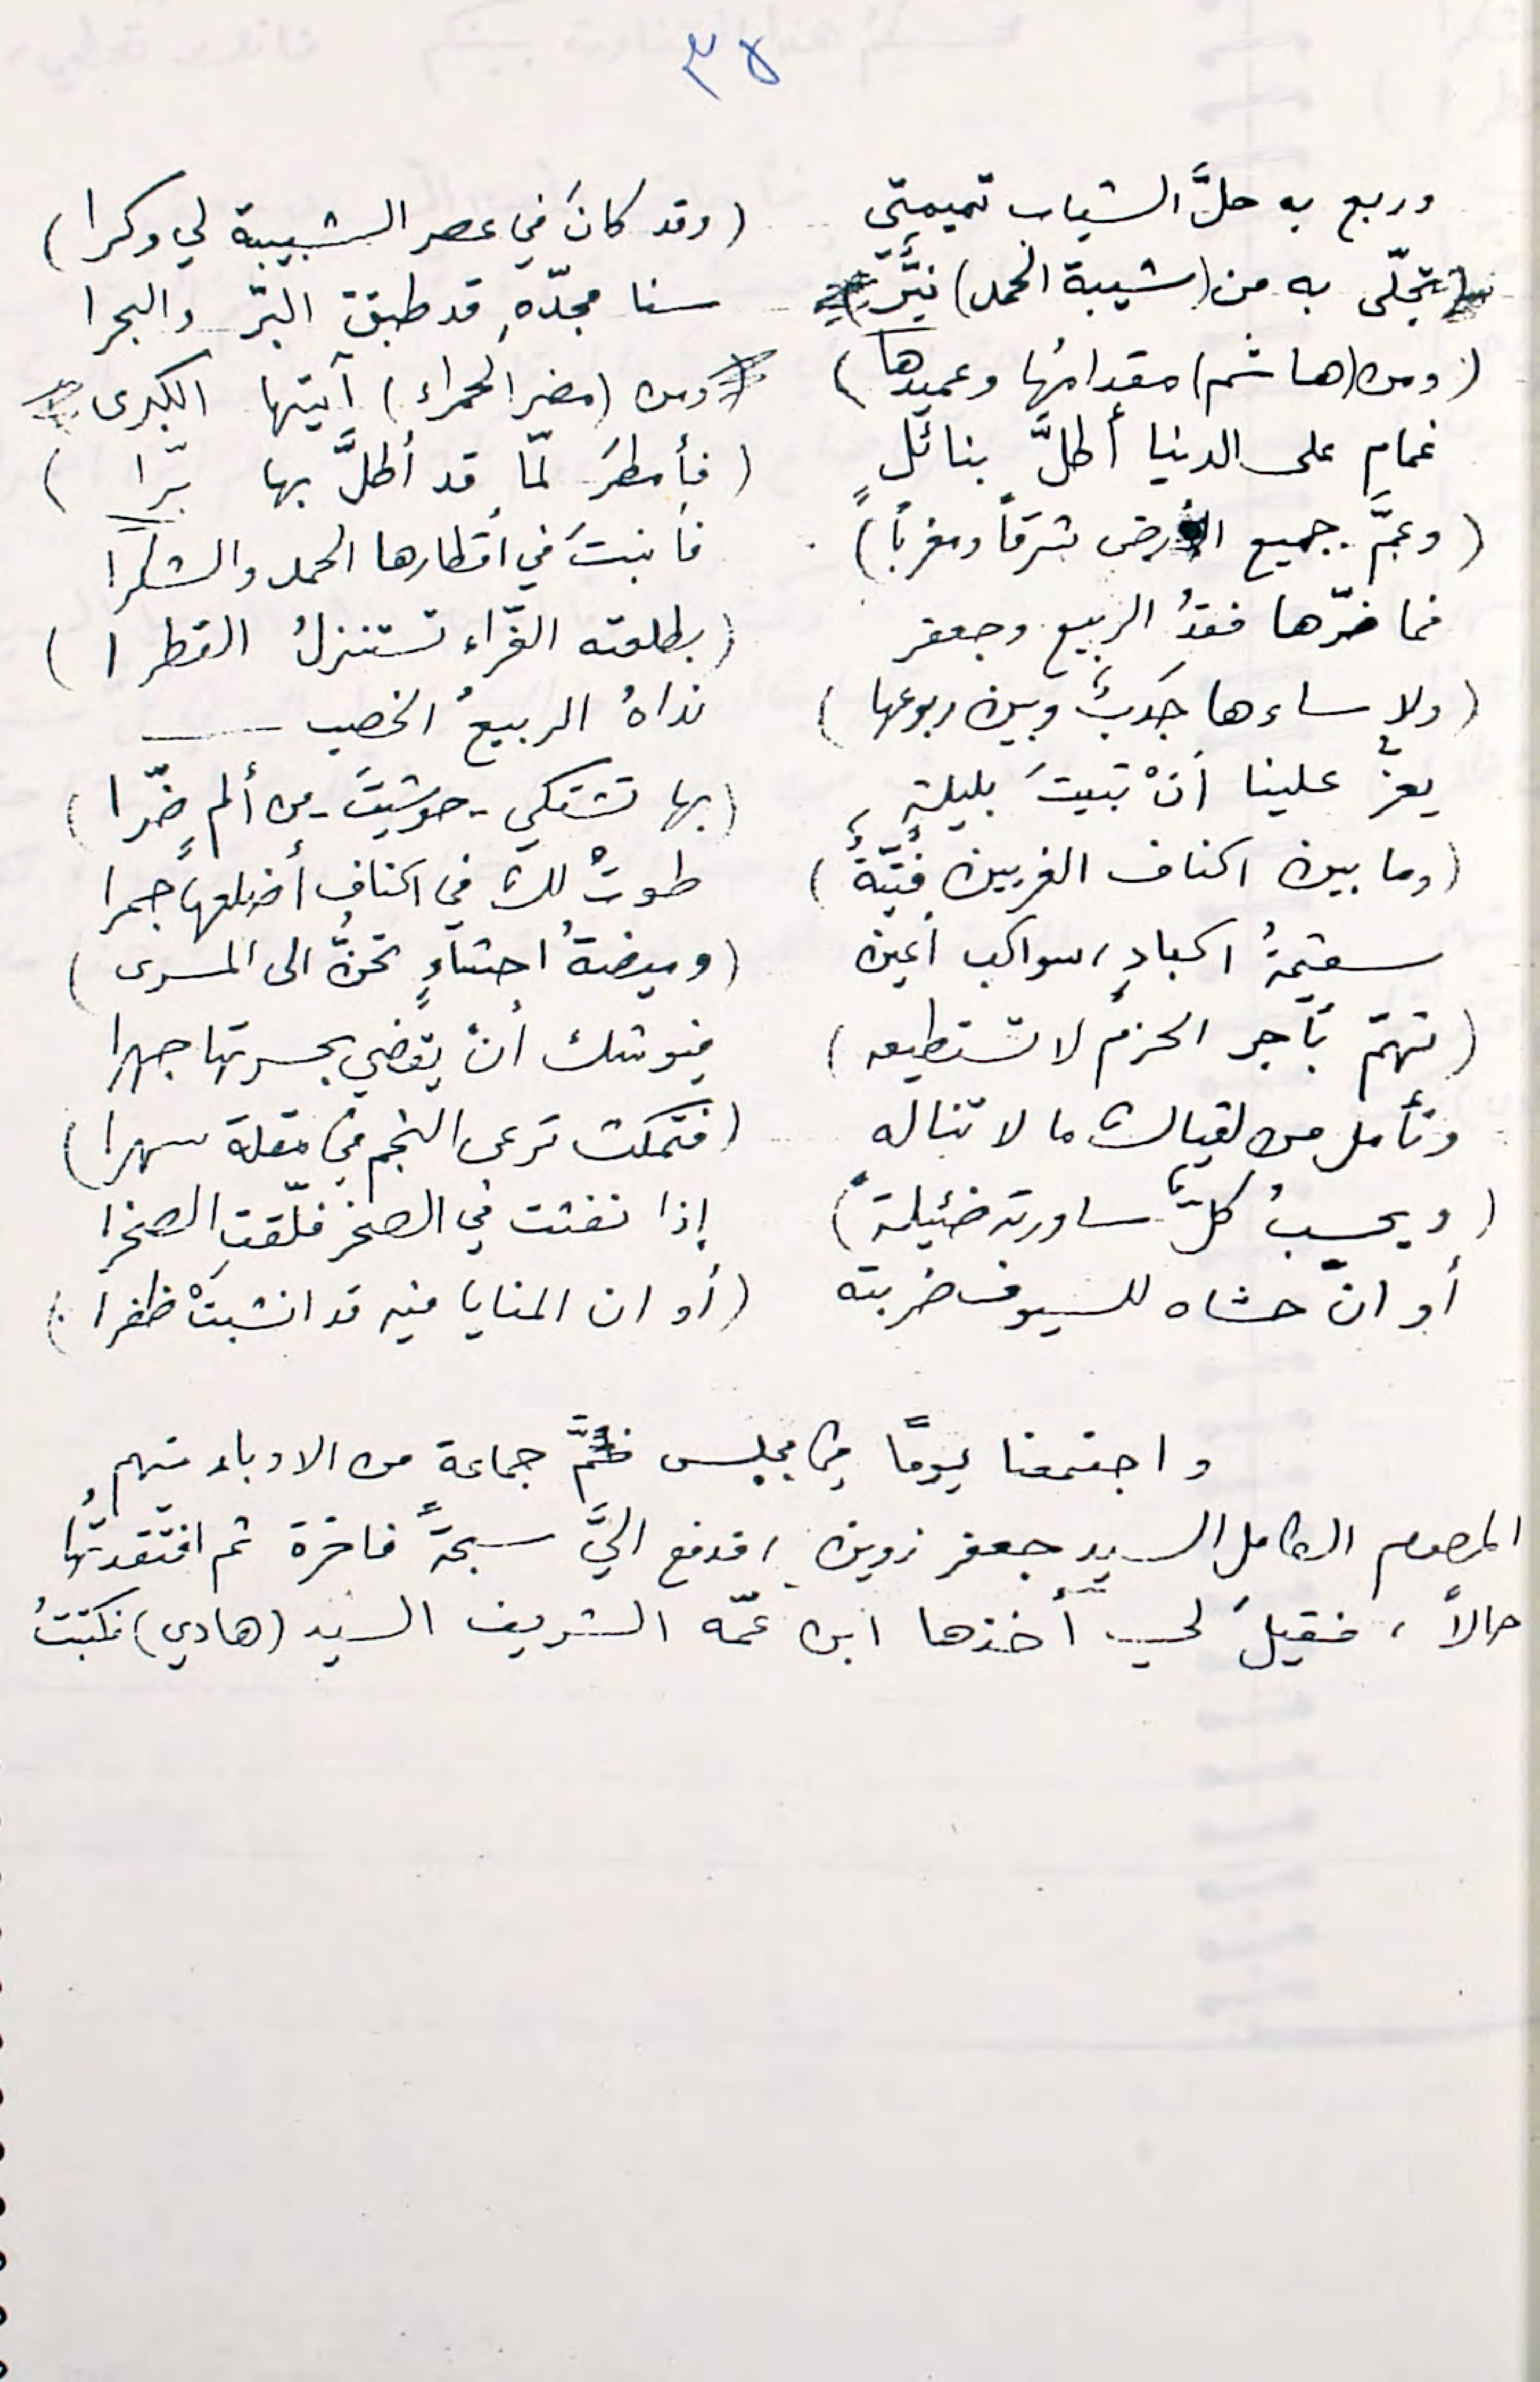 ٣٨
وربع به حلَّ الشباب تميمتي (وقد كانَ في عصر الشبيبة لي وكرا)
تجلّى به من (شيبة الحمد) نيّرٌ سنا مجدّهِ قد طبّقَ البرّ والبحرا
(ومن (هاشم) مقدامُها وعميدها) ومن (مضر الحمراء) آيتها الكبرى
غمام على الدنيا أطلَّ بنائلٍ (فأمطرَ لمّا قد أطلَّ بها برّا)
(وعمَّ جميع الأرض شرقاً ومغرباً) فأنبتَ في أقطارها الحمد والشكرا
فما ضرّها فقدُ الربيع وجعفر (بطلعته الغرّاء تستنزلُ القطرا)
(ولا ساءها جَدبٌ وبين ربوعها) نداهُ الربيعُ الخصب
يعزُّ علينا أنْ تبيتَ بليلةٍ (بها تشتكي - حوشيتَ - من ألمٍ ضرّا)
(وما بين اكناف الغريين فتيّةٌ) طوتْ لك في اكنافِ أضلعها جمرا
سقيمةُ اكبادٍ، سواكب أعين (وميضةُ احشاءٍ تحنُّ الى المسرى)
(تهمّ بآجر الحزم لا تستطيعه) فيوشك أنْ يقضي بحسرتها جهرا
وتأمل من لقياك ما لا تناله (فتمكث ترعى النجم في مقلة سهرا)
(ويحسبُ كلٌّ ساورته ضئيلة) إذا نفثت في الصخر فلّقتِ الصخرا
أو انّ حشاه للسيوف ضريبة (أو ان المنايا فيه قد انشبتْ ظفرا)
واجتمعنا يومًا في مجلس ضَمَّ جماعة من الادباء منهم
المرحوم الكامل السيد جعفر زوين، فدفع اليَّ سبحةً فاخرة ثم افتقدتُها
حالاً، فقيلَ لي أخذها ابن عمّه الشريف السيد (هادي) فكتبتُ